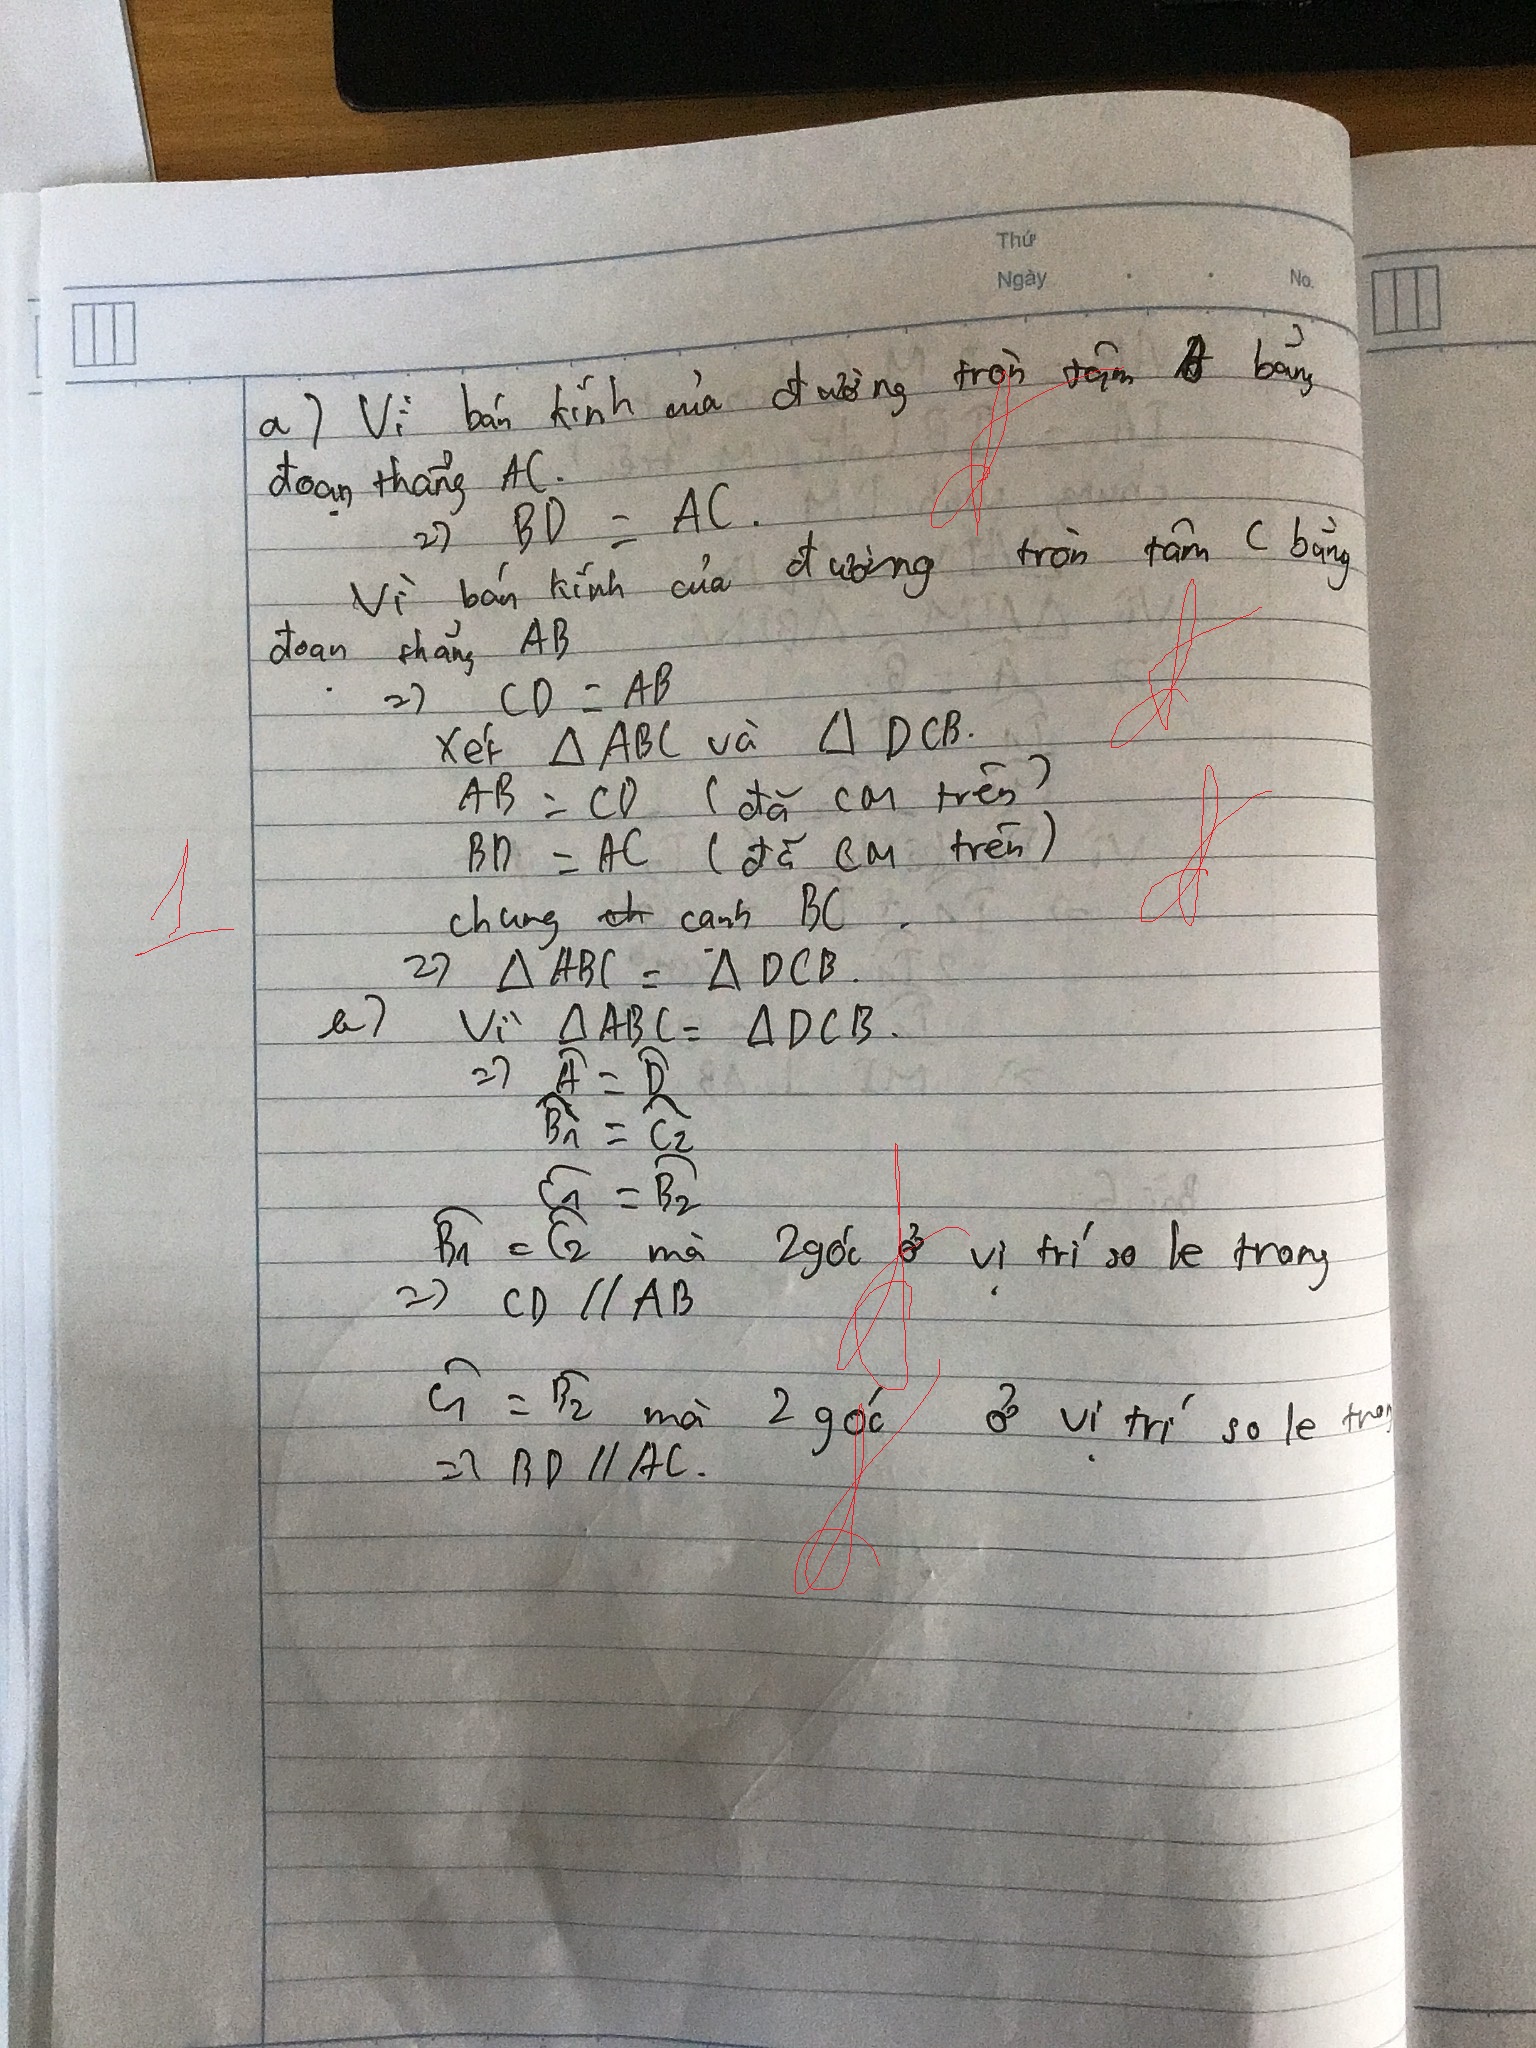 Thứ
Ngày
No.
a) Vì bán kính của đường tròn tâm B bằng
đoạn thẳng AC.
=> BD = AC.
Vì bán kính của đường tròn tâm C bằng
đoạn thẳng AB
=> CD = AB
Xét Δ ABC và Δ DCB.
AB = CD (đã CM trên)
BD = AC (đã CM trên)
chung cạnh BC.
1
=> Δ ABC = Δ DCB.
b) Vì Δ ABC = Δ DCB.
=> Â = D̂
B̂1 = Ĉ2
Ĉ1 = B̂2
B̂1 = Ĉ2 mà 2 góc ở vị trí so le trong
=> CD // AB
Ĉ1 = B̂2 mà 2 góc ở vị trí so le trong
=> BD // AC.